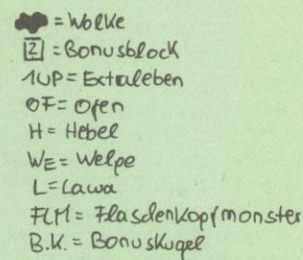 = Wolke
[Z] = Bonusblock
1UP = Extraleben
OF = Ofen
H = Hebel
WE = Welpe
L = Lava
FLM = Flaschenkopfmonster
B.K. = Bonuskugel